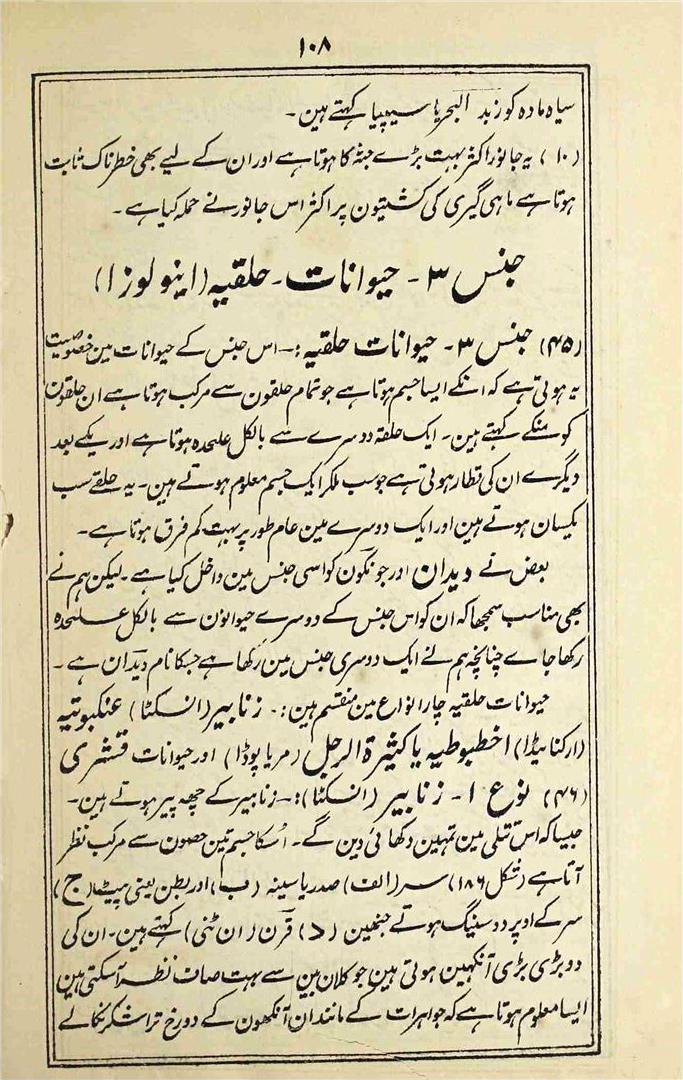 ۱۰۸
سیاہ مادہ کو زبد البحر یا سیپیا کہتے ہین۔
(۱۰) یہ جانور اکثر بہت بڑے جثہ کا ہوتا ہے اور ان کے لیے بھی خطرناک ثابت
ہوتا ہے ماہی گیری کی کشتیون پر اکثر اس جانور نے حملہ کیا ہے۔
جنس ۳۔ حیوانات۔ حلقیہ (اینولوزا)
(۴۵) جنس ۳۔ حیوانات حلقیہ:۔ اس جنس کے حیوانات مین خصوصیت
یہ ہوتی ہے کہ انکے ایسا جسم ہوتا ہے جو تمام حلقون سے مرکب ہوتا ہے ان حلقون
کو منکے کہتے ہین۔ ایک حلقہ دوسرے سے بالکل علیحدہ ہوتا ہے اور یکے بعد
دیگرے ان کی قطار ہوتی ہے جو سب ملکر ایک جسم معلوم ہوتے ہین۔ یہ حلقے سب
یکسان ہوتے ہین اور ایک دوسرے مین عام طور پر بہت کم فرق ہوتا ہے۔
بعض نے دیدان اور جونکون کو اسی جنس مین داخل کیا ہے۔ لیکن ہم نے
بھی مناسب سمجھا کہ ان کو اس جنس کے دوسرے حیوانون سے بالکل علیحدہ
رکھا جاے چنانچہ ہم نے ایک دوسری جنس مین رکھا ہے جسکا نام دیدان ہے۔
حیوانات حلقیہ چار انواع مین منقسم ہین:۔ زنابیر (انسکٹا) عنکبوتیہ
(ارکنائیڈا) اخطبوطیہ یا کثیرۃ الرجل (مریاپوڈا) اور حیوانات قشری
(۴۶) نوع ۱۔ زنابیر (انسکٹا):۔ زنابیر کے چھہ پیر ہوتے ہین۔
جیسا کہ اس تتلی مین تمہین دکھائی دین گے۔ اسکا جسم تین حصون سے مرکب نظر
آتا ہے (شکل ۱۸۶) سر (الف) صدر یا سینہ (ب) اور بطن یعنی پیٹ (ج)
سر کے اوپر دو سینگ ہوتے جنھین (د) قرن (ان ٹنی) کہتے ہین۔ ان کی
دو بڑی بڑی آنکہین ہوتی ہین جو کلان بین سے بہت صاف نظر آسکتی ہین
ایسا معلوم ہوتا ہے کہ جواہرات کے مانند ان آنکھون کے دو رخ تراشکر نکالے